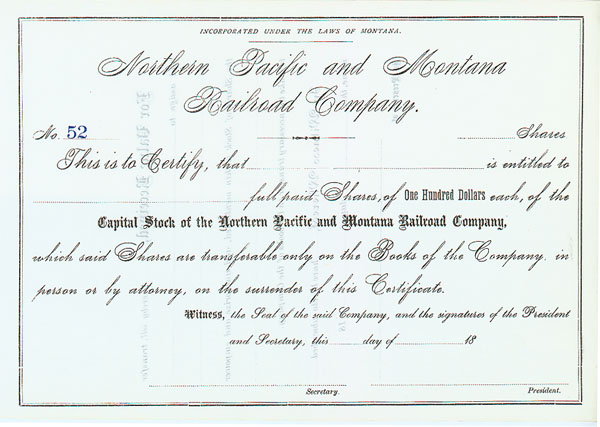 INCORPORATED UNDER THE LAWS OF MONTANA.
Northern Pacific and Montana
Railroad Company.
No. 52 Shares
This is to Certify, that is entitled to
full paid Shares, of One Hundred Dollars each, of the
Capital Stock of the Northern Pacific and Montana Railroad Company,
which said Shares are transferable only on the Books of the Company, in
person or by attorney, on the surrender of this Certificate.
Witness, the Seal of the said Company, and the signatures of the President
and Secretary, this day of 18
Secretary. President.